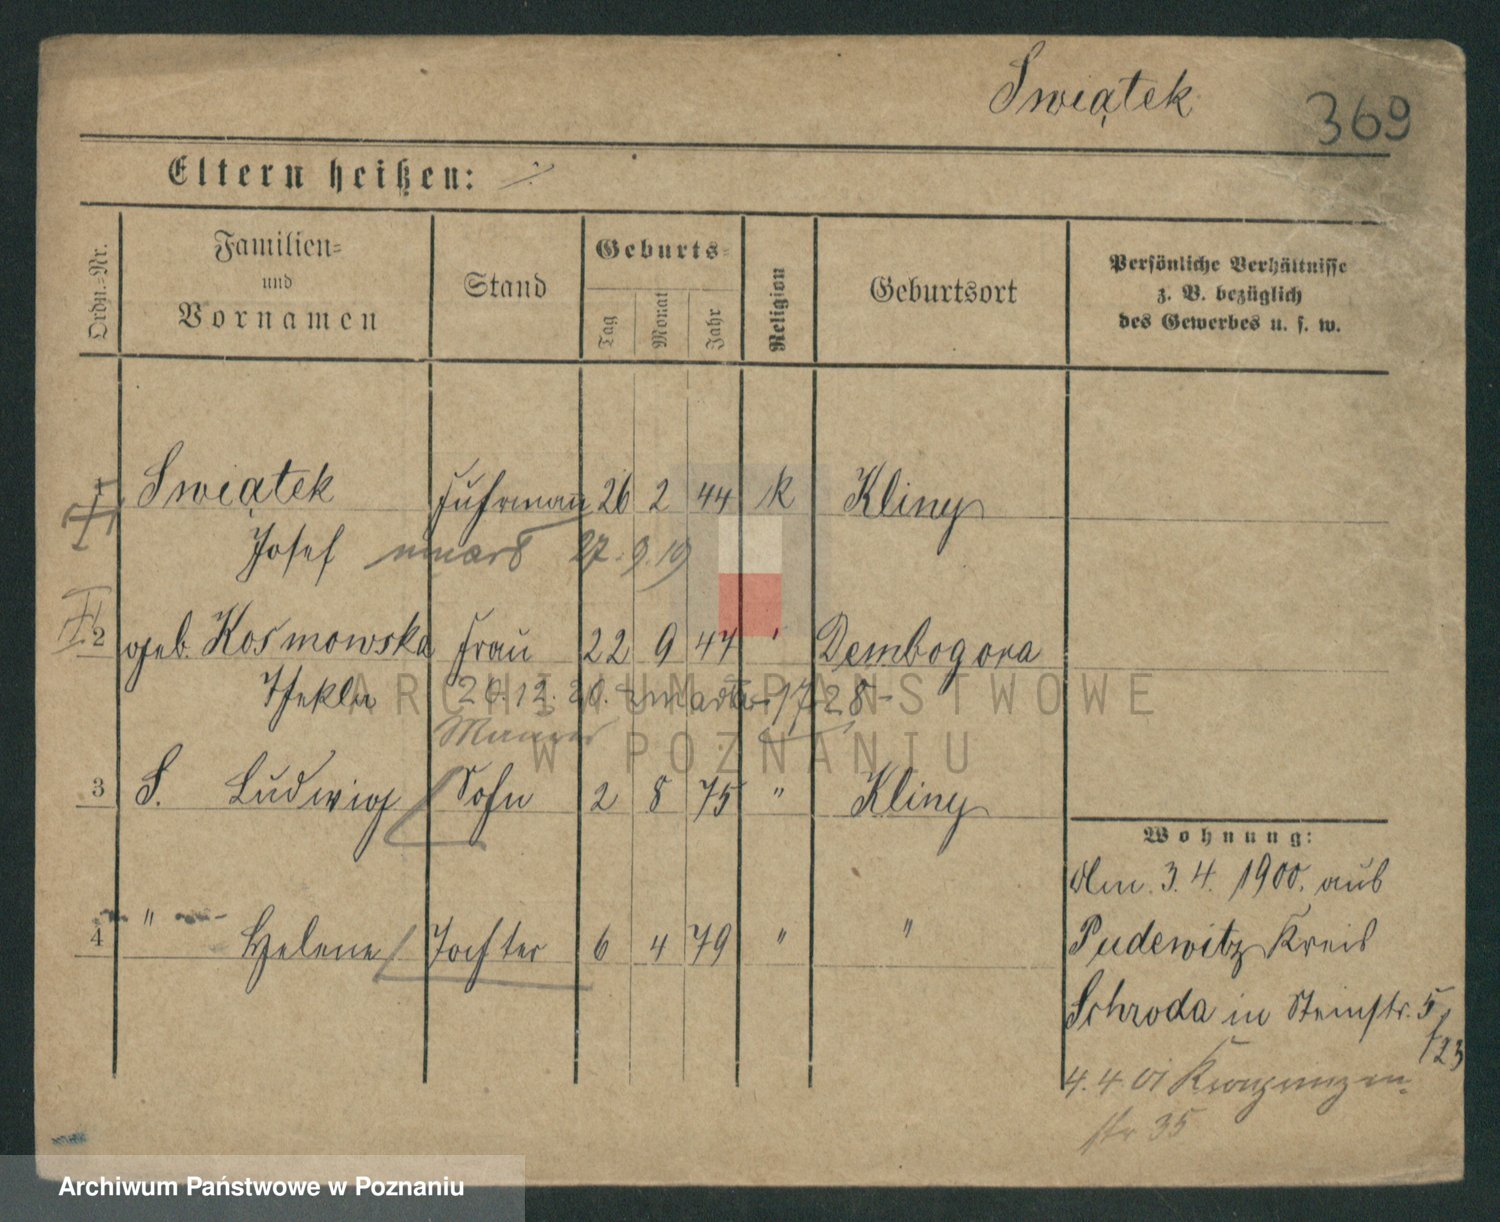 Swiątek
369
Eltern heißen:
Ordn.-Nr.
Familien-
und
Vornamen
Stand
Geburts-
Tag
Monat
Jahr
Religion
Geburtsort
Persönliche Verhältnisse
z. B. bezüglich
des Gewerbes u. s. w.
1 Swiątek Fuhrmann 26 2 44 k Kliny
Josef zmarł 27.9.19
2 geb. Kosmowska Frau 22 9 47 " Dembogora
Thekla 20.12.20. zmarła 1728
3 S. Ludwig Sohn 2 8 75 " Kliny
4 " Helene Tochter 6 4 79 " "
Wohnung:
Am. 3. 4. 1900. aus
Pudewitz Kreis
Schroda in Steinstr. 5/23
4.4.01
str 35
ARCHIWUM PAŃSTWOWE
W POZNANIU
Archiwum Państwowe w Poznaniu